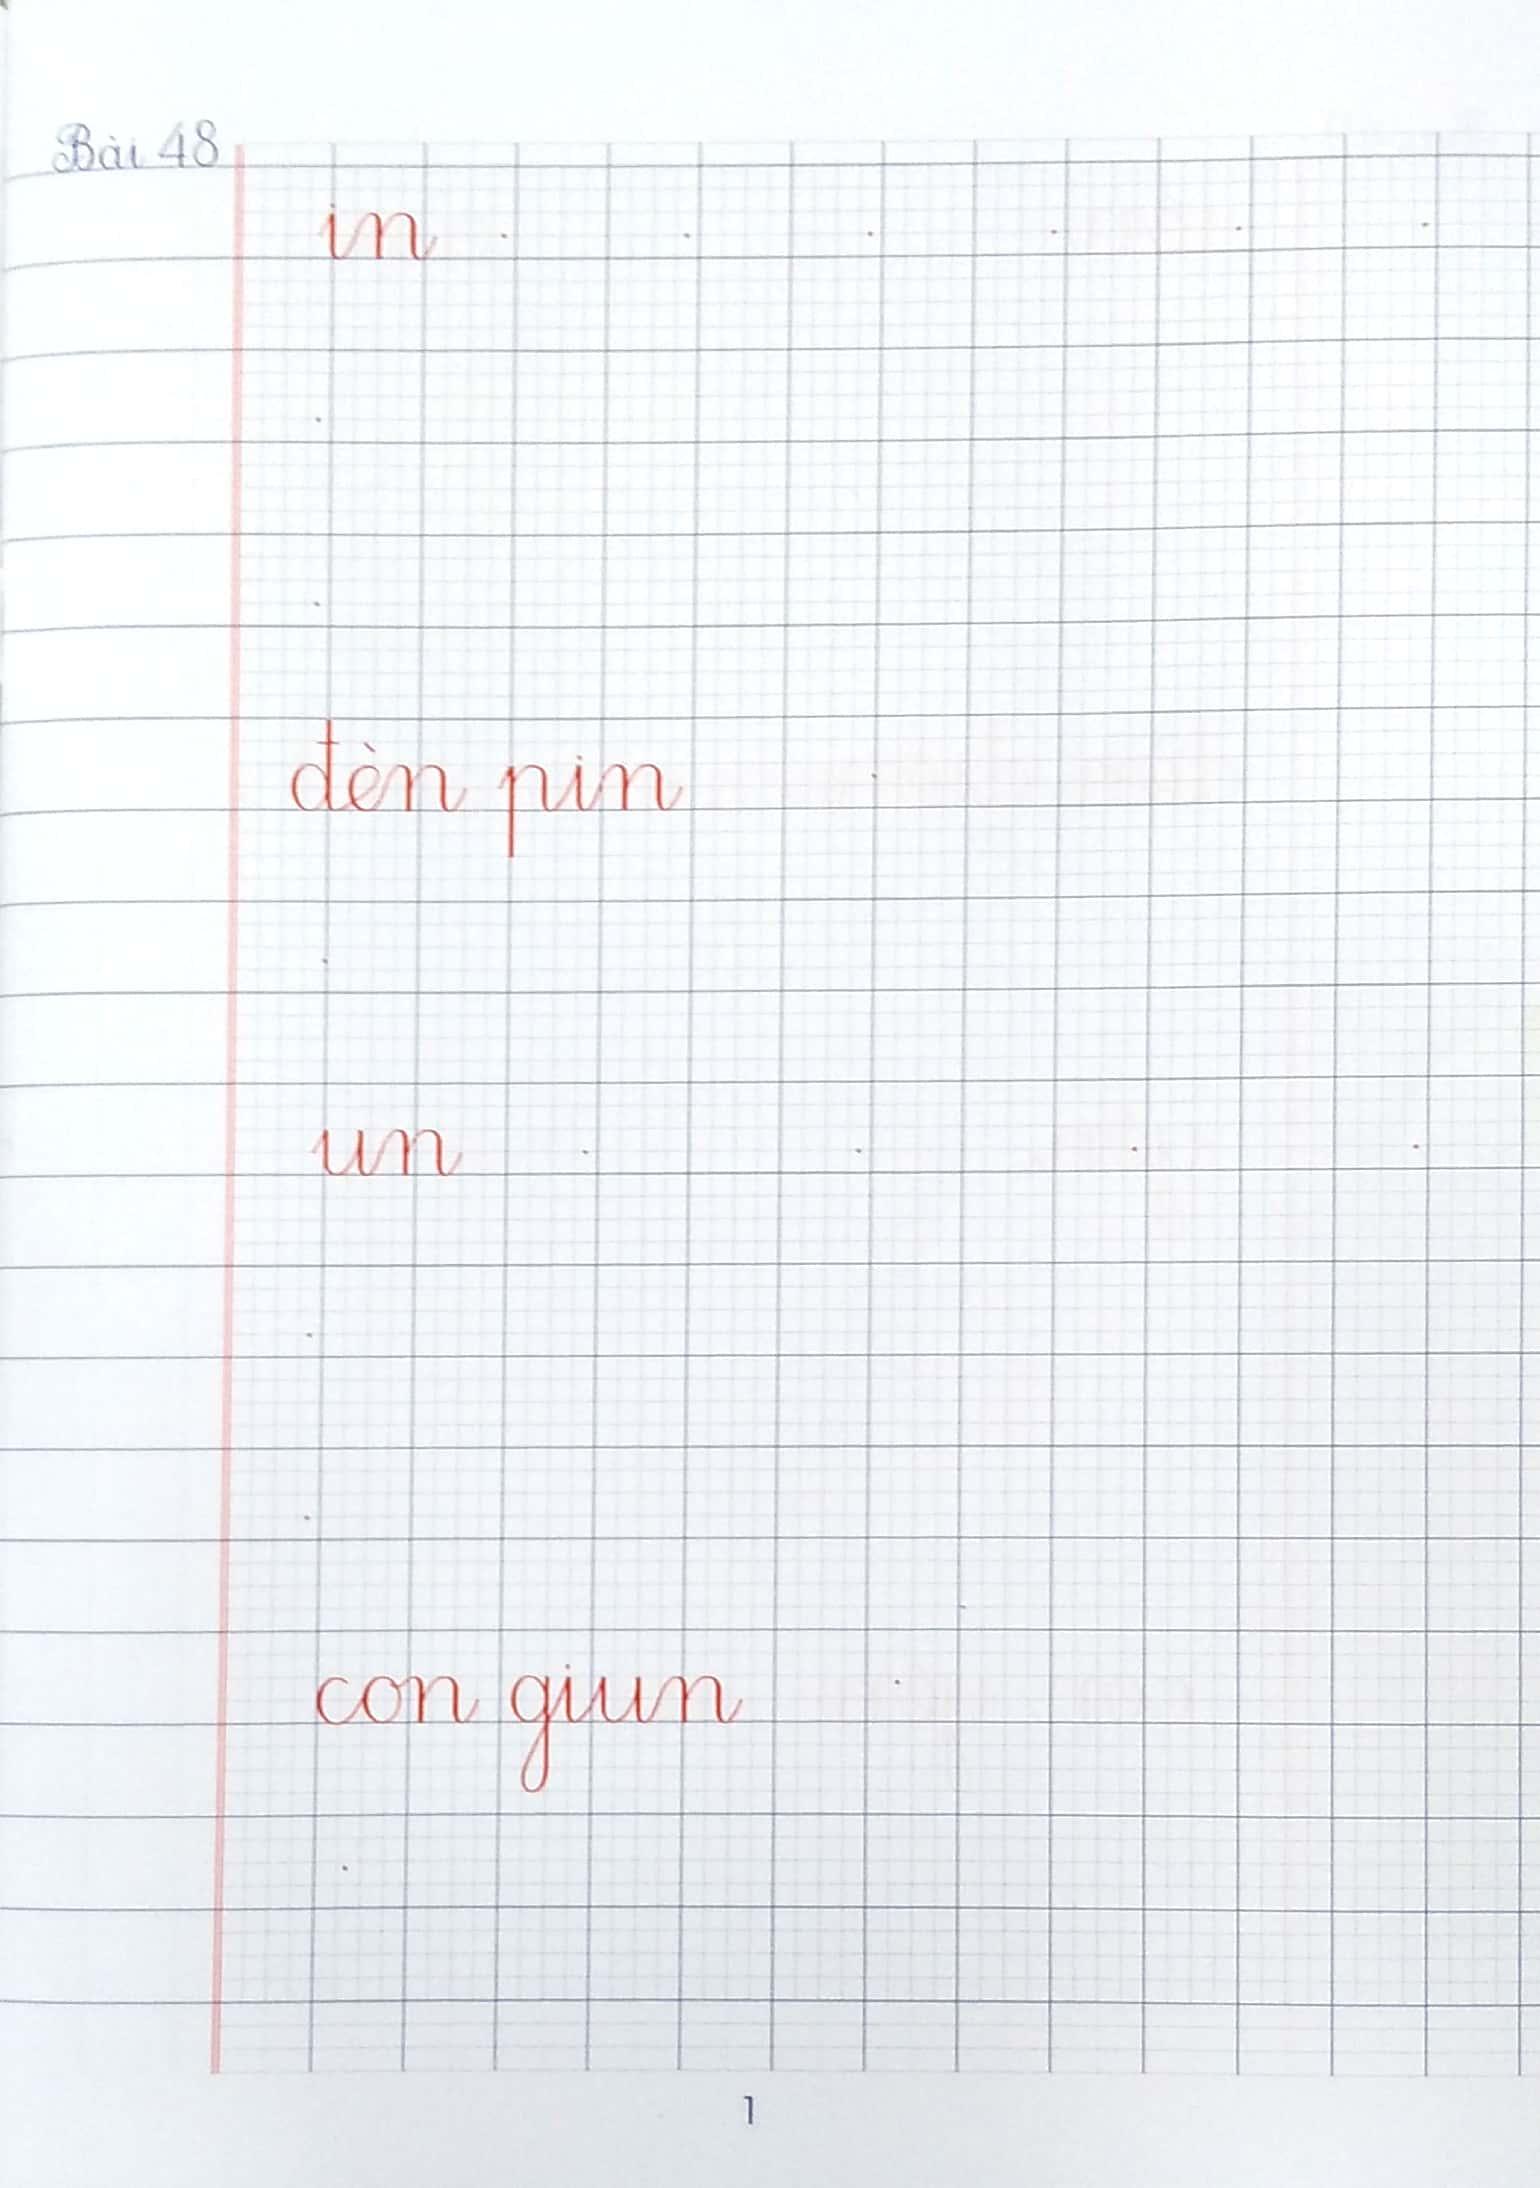 Bài 48
in
đèn pin
un
con giun
1